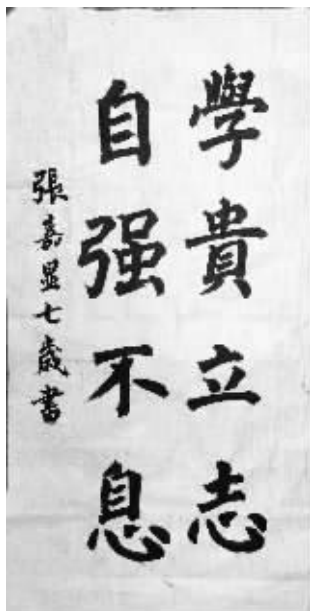 學貴立志
自强不息
張嘉显七歳書